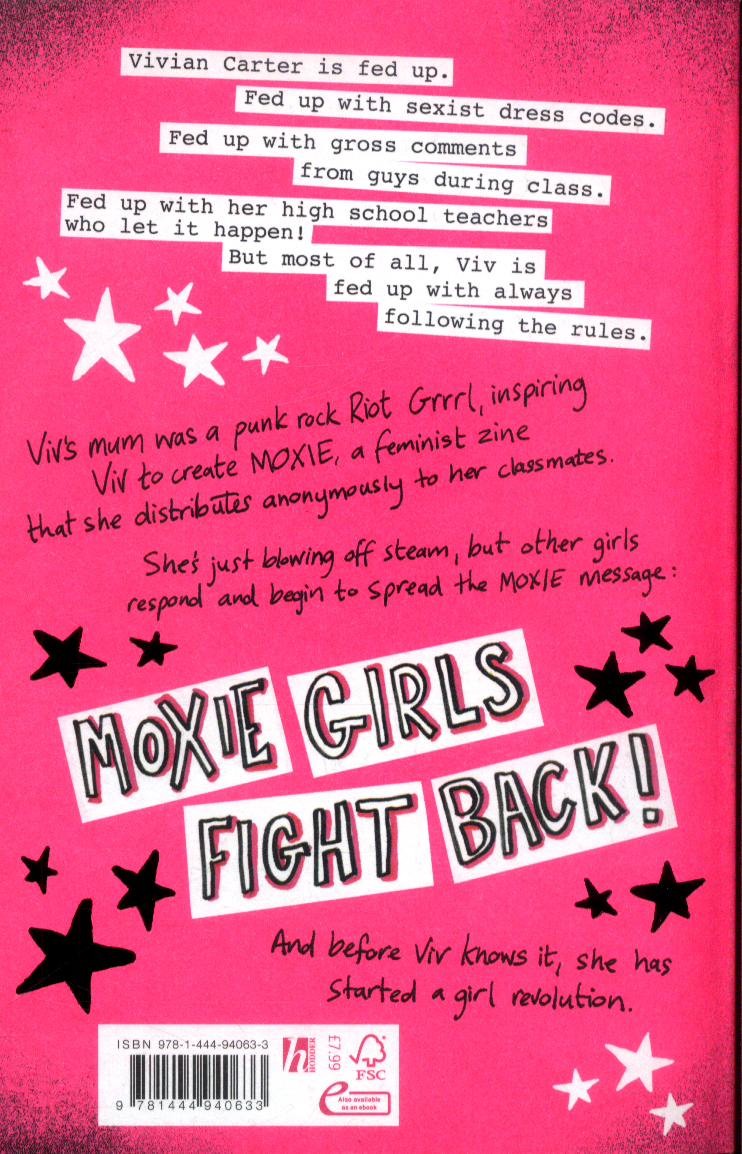 Vivian Carter is fed up.
Fed up with sexist dress codes.
Fed up with gross comments
from guys during class.
Fed up with her high school teachers
who let it happen!
But most of all, Viv is
fed up with always
following the rules.
Viv's mum was a punk rock Riot Grrrl, inspiring
Viv to create MOXIE, a feminist zine
that she distributes anonymously to her classmates.
She's just blowing off steam, but other girls
respond and begin to spread the MOXIE message:
MOXIE GIRLS
FIGHT BACK!
And before Viv knows it, she has
started a girl revolution.
ISBN 978-1-444-94063-3
9 781444 940633
h
HODDER
£7.99
FSC
e
Also available
as an ebook